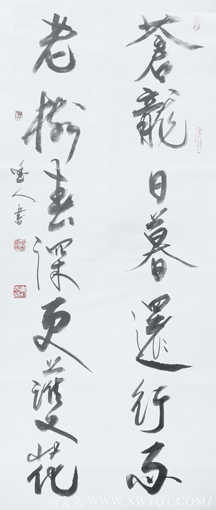 蒼龍日暮還行雨
老樹春深更護花
人書
WWW.XWYQT.COM/